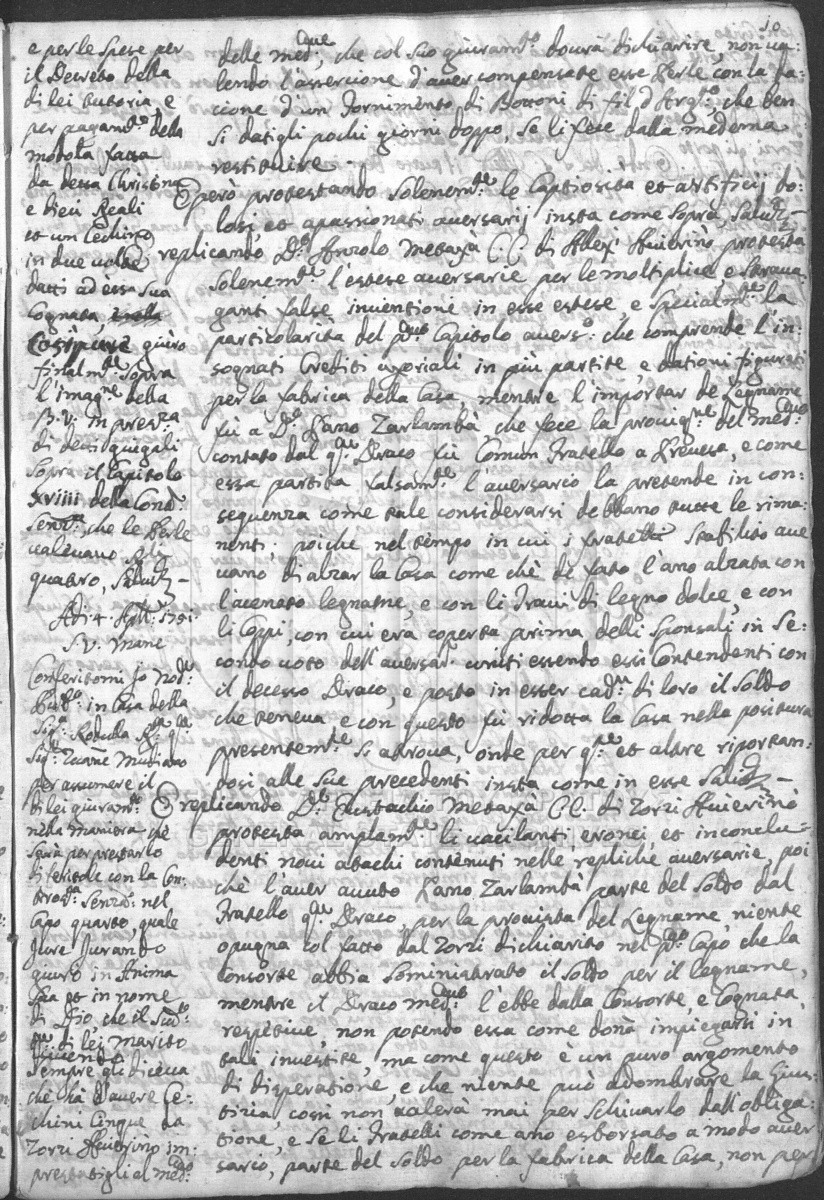 10
e per le spese per
il Decreto della
di lei tutoria e
per pagam:to della
da detta Christina
e dieci Reali
et un Cechino
in due volte
datti ad essa sua
Cognata,
Così pure giurò
finalm:te sopra
l'imag:ne della
B. V. in presza
di
sopra il Capitolo
XVIIII della Cont:
senza, che le Perle
valevano Rli
quattro, salvis –
Adi 4 Aple 1751
S. V. mane
Conferitomi Io Nod:o
in Casa della
Sig:a Rodulla R:a q:m
Sig:r Zuane Mudiano
per assumere il
di lei giuram:to
nella maniera che
sarà per prestarlo
di fertile con la Con:
trad:a senza: nel
Capo quarto, quale
Jure Jurando
giurò in Anima
sua et in nome
di Dio che il
di lei marito
vivendo
sempre gli diceva
che hà d'avere Ce:
chini Cinque da
Zorzi Avierinò im:
prestatigli al med:o
delle med:me, che col suo giuram:to dovrà dichiarire, non va:
lendo l'assercione d'aver compensate esse Perle con la da:
cione d'un fornimento di Bottoni di fil d'Arg:to, che ben
si datigli pochi giorni doppo, se li fece dalla medema
restituire.
E però protestando solenem:te le Captiosità et artificij do:
losi, et apassionati aversarij insta come sopra, salvis –
E replicando D:o Anzolo Metaxà CC di Alexi Avierinò protesta
solenem:te l'estese aversarie per le moltiplici e strava:
ganti false inventioni in esse estese, e specialm:te la
particolarità del p:mo Capitolo avers:o che comprende l'in:
sognati Crediti uxoriali in più partite, e dationi figurati
per la fabrica della Casa, mentre l'importar de Legname
fù a D:o Zarlambà che fece la proviq:ne del med:mo
contato dal q:m Draco fù Comun fratello a Prevesa, e come
essa partita falsam:te l'aversario la pretende in con:
sequenza come tale considerarsi debbano tutte le rima:
nenti: poiche nel tempo in cui i fratelli stabilito ave
vano di alzar la Casa come chè di fato l'ano alzata con
l'acenato legname, e con li travi di legno dolce, e con
li Coppi, con cui era coperta prima delli sponsali in se:
condo voto dell'aversar:o uniti essendo essi Contendenti con
il decesso Draco, e posto in esser cad:un di loro il soldo
che teneva e con questo fù ridotta la Casa nella positura
presentem:te si atrova, onde per q:to et altre riportan:
dosi alle sue precedenti insta come in esse salvis –
E replicando D:o Eustachio Metaxà CC. di Zorzi Avierinò
protesta amplam:te li vacilanti eronei, et inconclu:
denti novi atachi contenuti nelle repliche aversarie, poi
chè l'aver avuto Zarlambà parte del soldo dal
fratello q:m Draco, per la provista del Legname niente
opugna col fatto dal Zorzi dichiarito nel p:mo Capo, che la
Consorte abbia soministrato il soldo per il legname,
mentre il Draco med:mo l'ebbe dalla Consorte, e Cognata
respetive, non potendo essa come donà impiegarsi in
tali investite, ma come questo è un puro argomento
di disperatione, e che niente può adombrare la Gius:
titia, così non valerà mai per schivarlo dall'obliga:
tione, e se li fratelli come ano esborsato a modo aver
sario, parte del soldo per la fabrica della Casa, non per